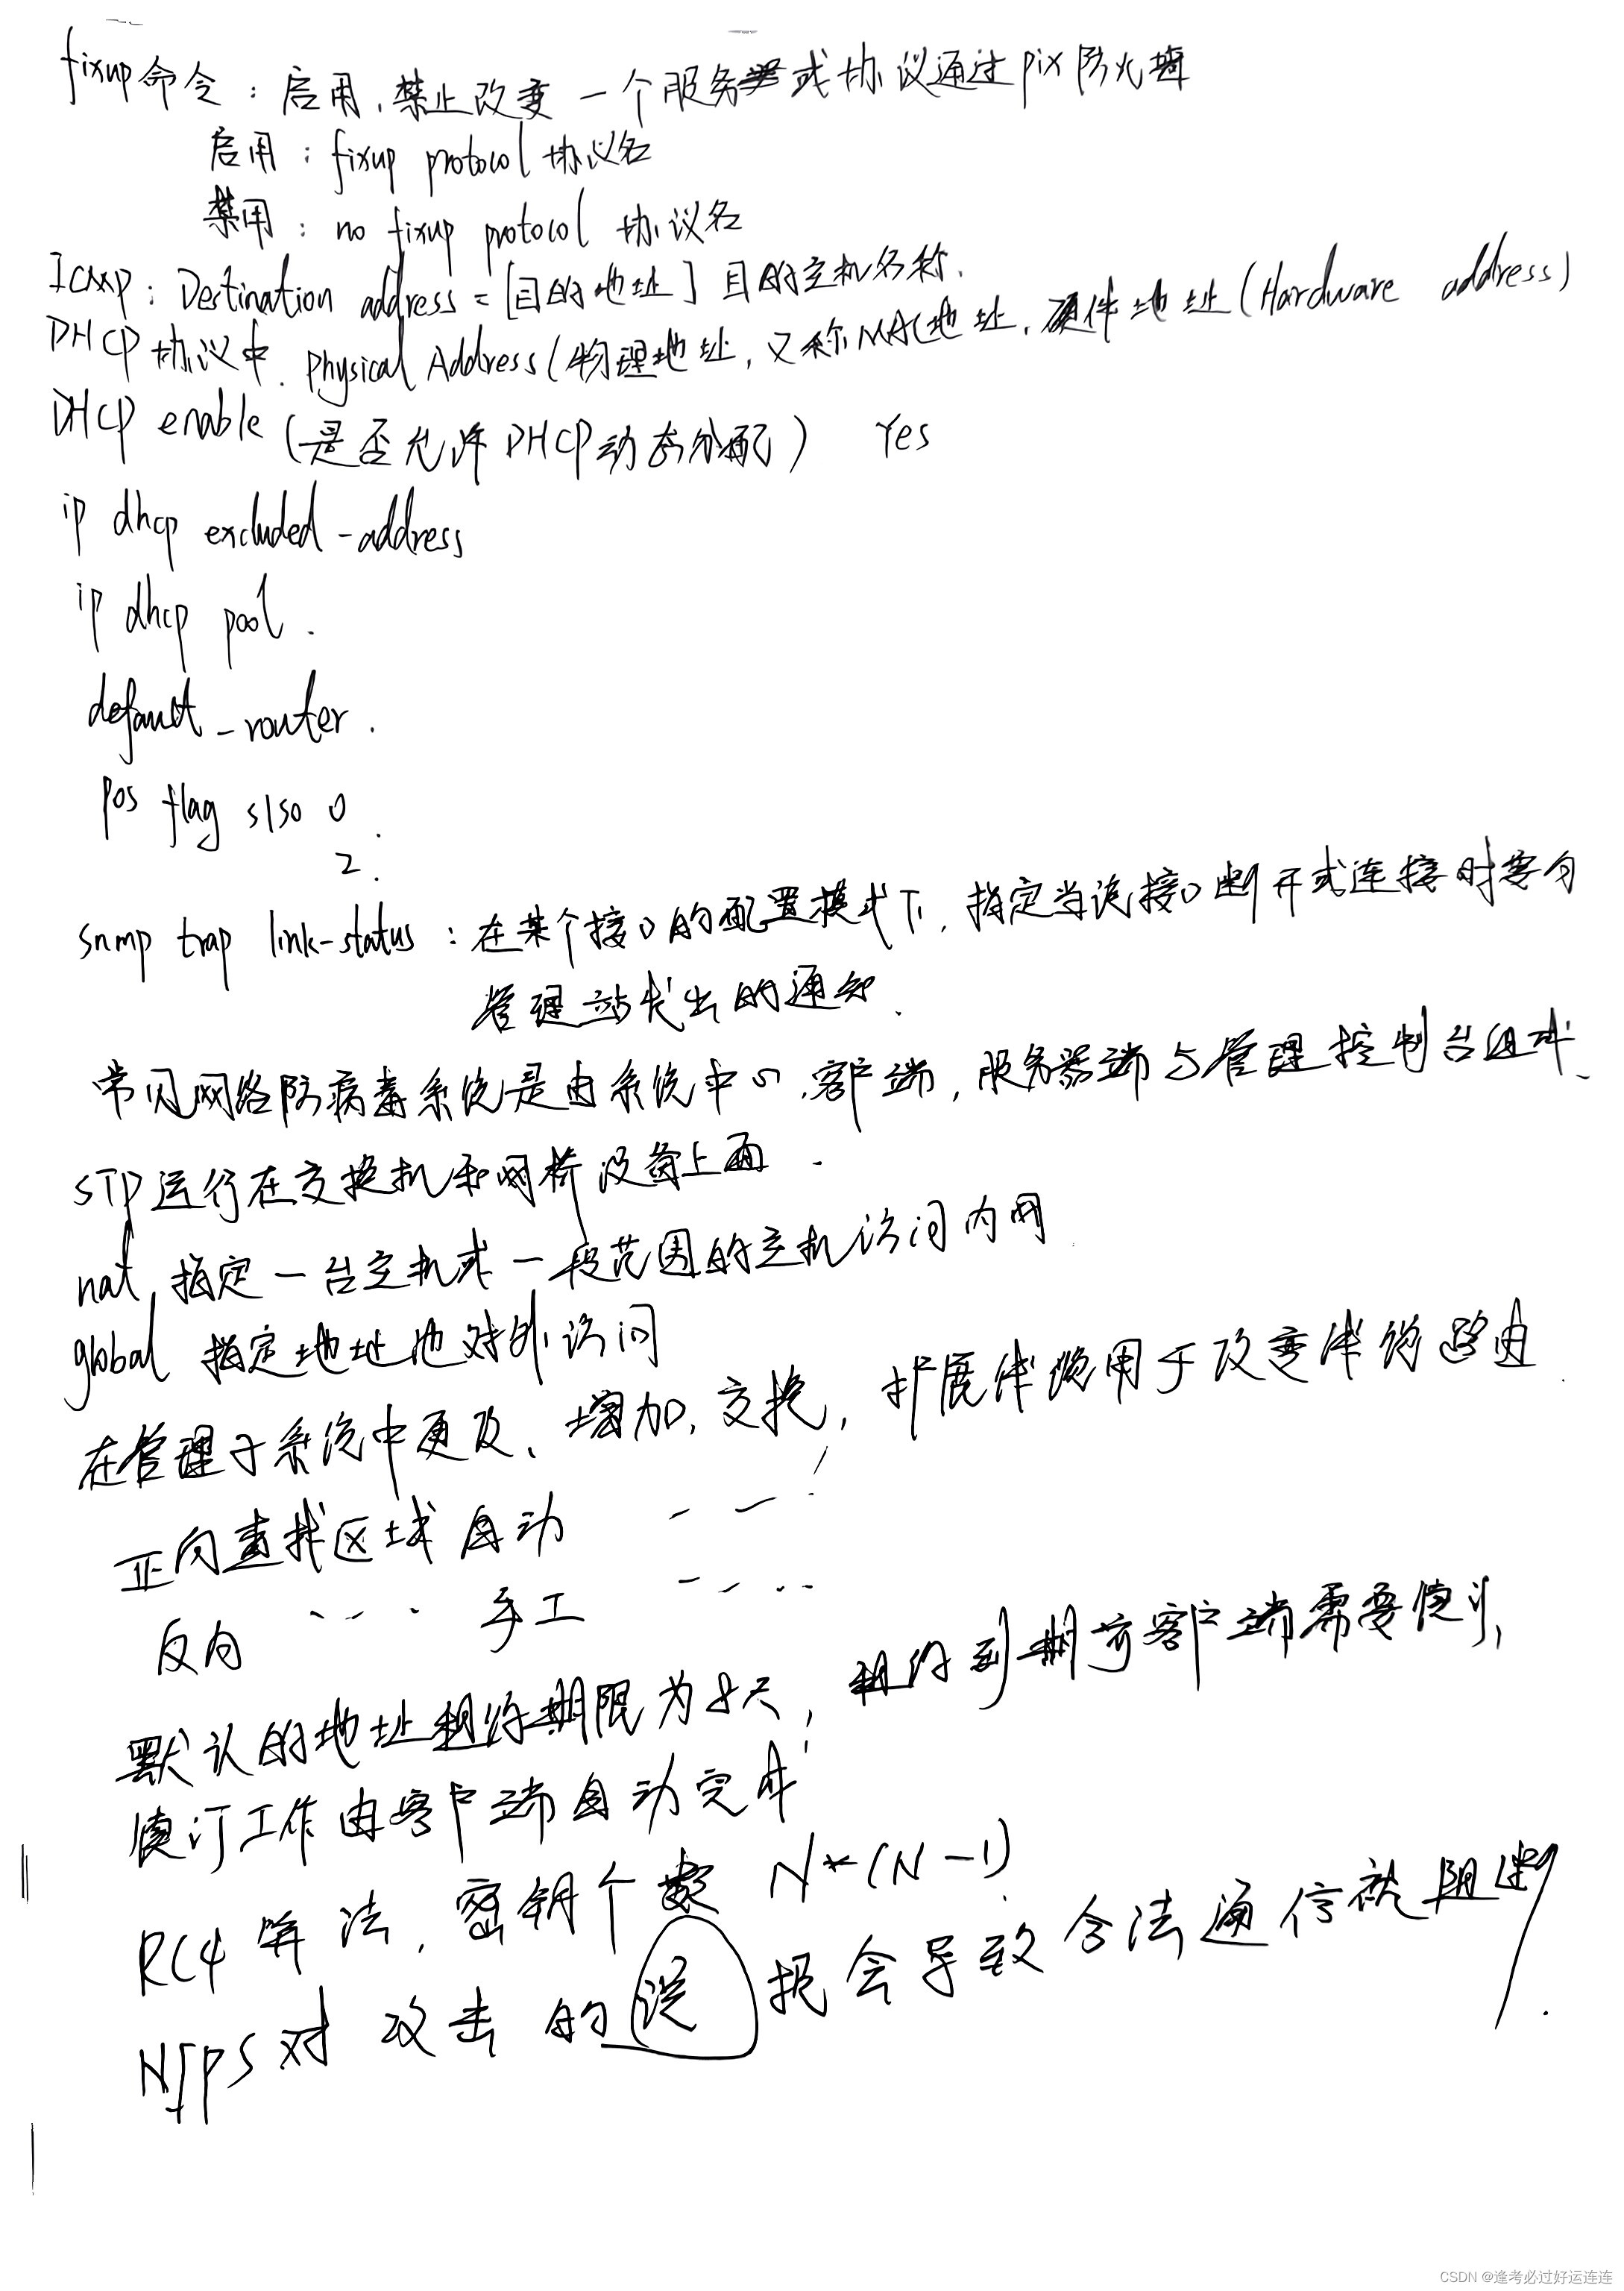 fixup命令：启用、禁止改变一个服务或协议通过pix防火墙
启用：fixup protocol 协议名
禁用：no fixup protocol 协议名
Icmp：Destination address = [目的地址] 目的主机名称.
DHCP协议中. Physical Address(物理地址, 又称MAC地址、硬件地址(Hardware address)
DHCP enable (是否允许DHCP动态分配) Yes
ip dhcp excluded-address
ip dhcp pool.
default-router.
pos flag s1s0 0.
2.
snmp trap link-status：在某个接口的配置模式下, 指定当该接口断开或连接时要向
管理站发出的通知.
常见网络防病毒系统是由系统中心、客户端, 服务器端与管理控制台组成.
STP运行在交换机和网桥设备上面.
nat 指定一台主机或一段范围的主机访问内网.
global 指定地址池对外访问
在管理子系统中更改、增加, 交换, 扩展线缆用于改变线缆路由.
正向查找区域 自动
反向 手工
默认的地址租约期限为8天, 租约到期前客户端需要续订,
续订工作由客户端自动完成
RC4算法, 密钥个数 N*(N-1)
NIPS对攻击的误报会导致合法通信被阻断.
CSDN @逢考必过好运连连